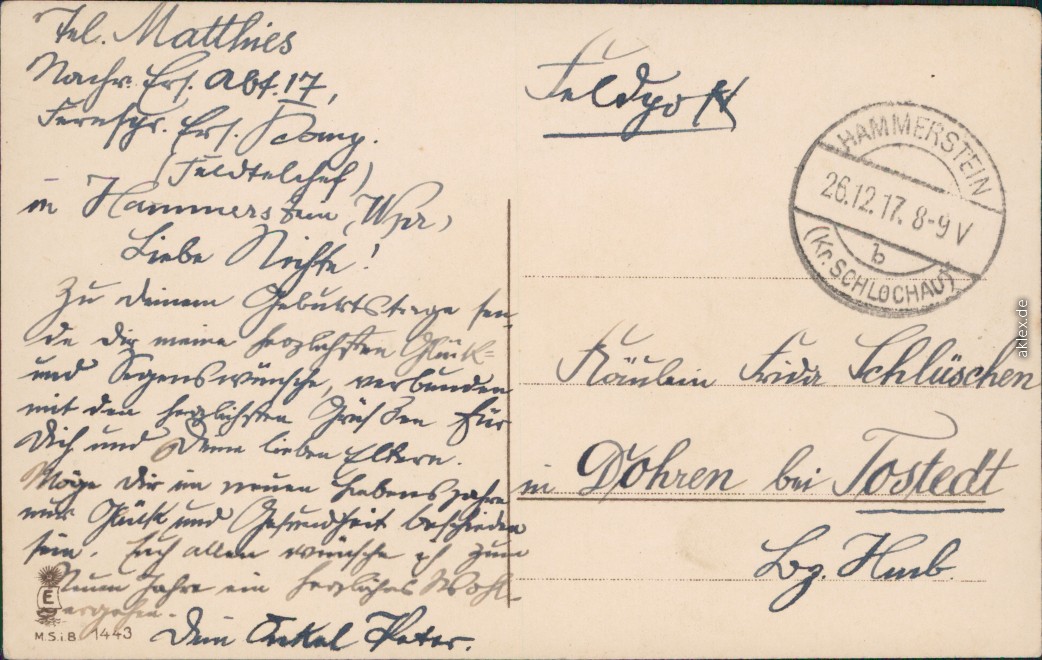 Tel. Matthies
Nachr. Ers. Abt. 17,
Fernspr. Ers. Komp.
(Feldtelchef)
in Hammerstein (Wpr.)
Liebe Nichte!
Zu deinem Geburtstage sen-
de dir meine herzlichsten Glück-
und Segenswünsche, verbunden
mit den herzlichsten Grüßen für
Dich und Deine lieben Eltern.
Möge Dir im neuen Lebensjahre
nur Glück und Gesundheit beschieden
sein. Euch allen wünsche ich zum
Neuen Jahre ein herzliches Wohl-
ergehen.
Dein Onkel Peter.
E
M.S.i.B 1443
Feldpost
HAMMERSTEIN
26.12.17. 8-9 V
b
(Kr. SCHLOCHAU)
Fräulein Frida Schlüschen
in Dohren bei Tostedt
Bz. Hmb.
aklex.de